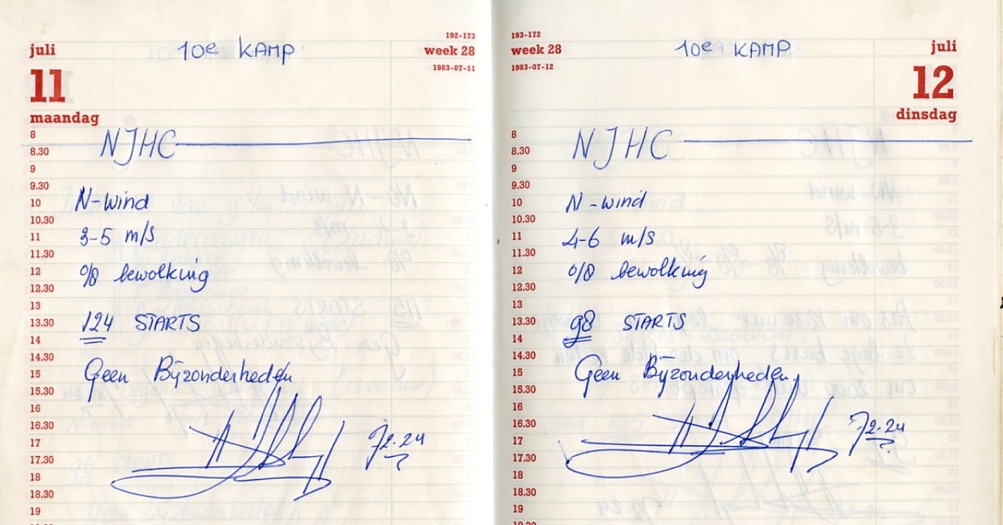 juli
10e KAMP
192-173
week 28
1983-07-11
11
maandag
8
8.30
NJHC
9
9.30
10
N-wind
10.30
11
3-5 m/s
11.30
12
0/8 bewolking
12.30
13
13.30
124 STARTS
14
14.30
15
Geen Bijzonderheden
15.30
16
16.30
17
17.30
18
18.30
19
193-172
week 28
1983-07-12
10e KAMP
juli
12
dinsdag
8
8.30
NJHC
9
9.30
10
N-wind
10.30
11
4-6 m/s
11.30
12
0/8 bewolking
12.30
13
13.30
98 STARTS
14
14.30
15
Geen Bijzonderheden.
15.30
16
16.30
17
17.30
18
18.30
19
19.30